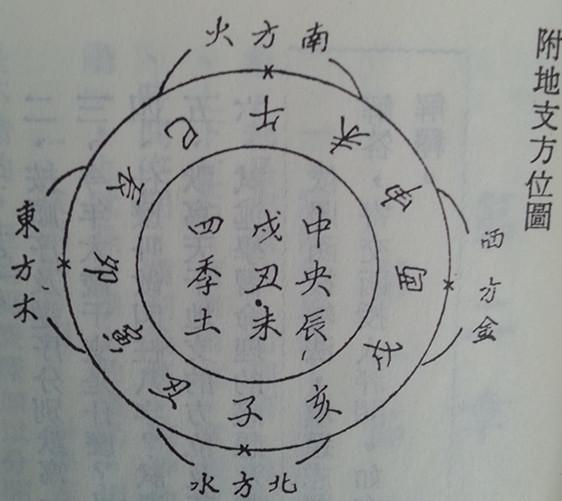 附地支方位圖
南方火
西方金
北方水
東方木
午
未
申
酉
戌
亥
子
丑
寅
卯
辰
巳
中央辰、
戌丑未
四季土